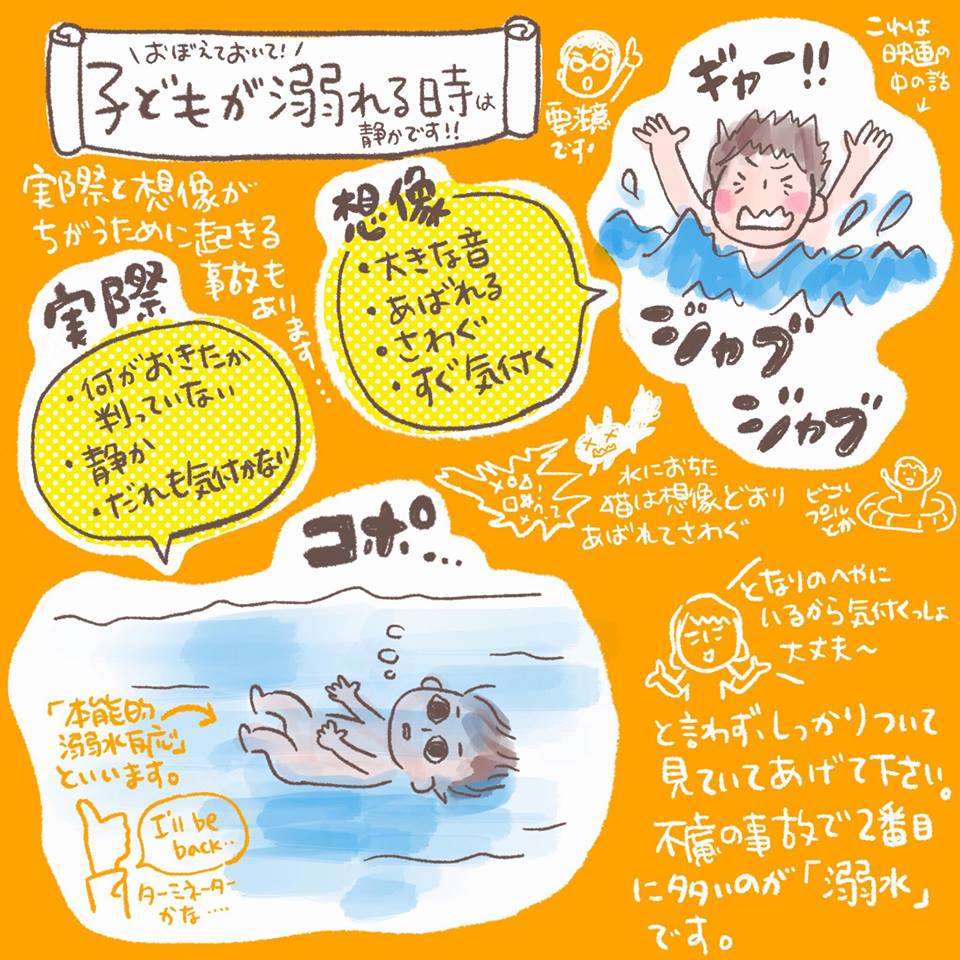 おぼえておいて!
子どもが溺れる時は
静かです!!
要注意
です。
これは
映画の
中の話
ギャー!!
ジャブ
ジャブ
実際と想像が
ちがうために起きる
事故も
あります…
想像
・大きな音
・あばれる
・さわぐ
・すぐ気付く
実際
・何がおきたか
判っていない
・静か
・だれも気付かない
水におちた
猫は想像どおり
あばれてさわぐ
プールとか
コポ…
「本能的
溺水反応」
といいます。
I'll be
back..
ターミネーター
かな….
となりのへやに
いるから気付くっしょ
大丈夫〜
と言わず、しっかりついて
見ていてあげて下さい。
不慮の事故で2番目
に多いのが「溺水」
です。